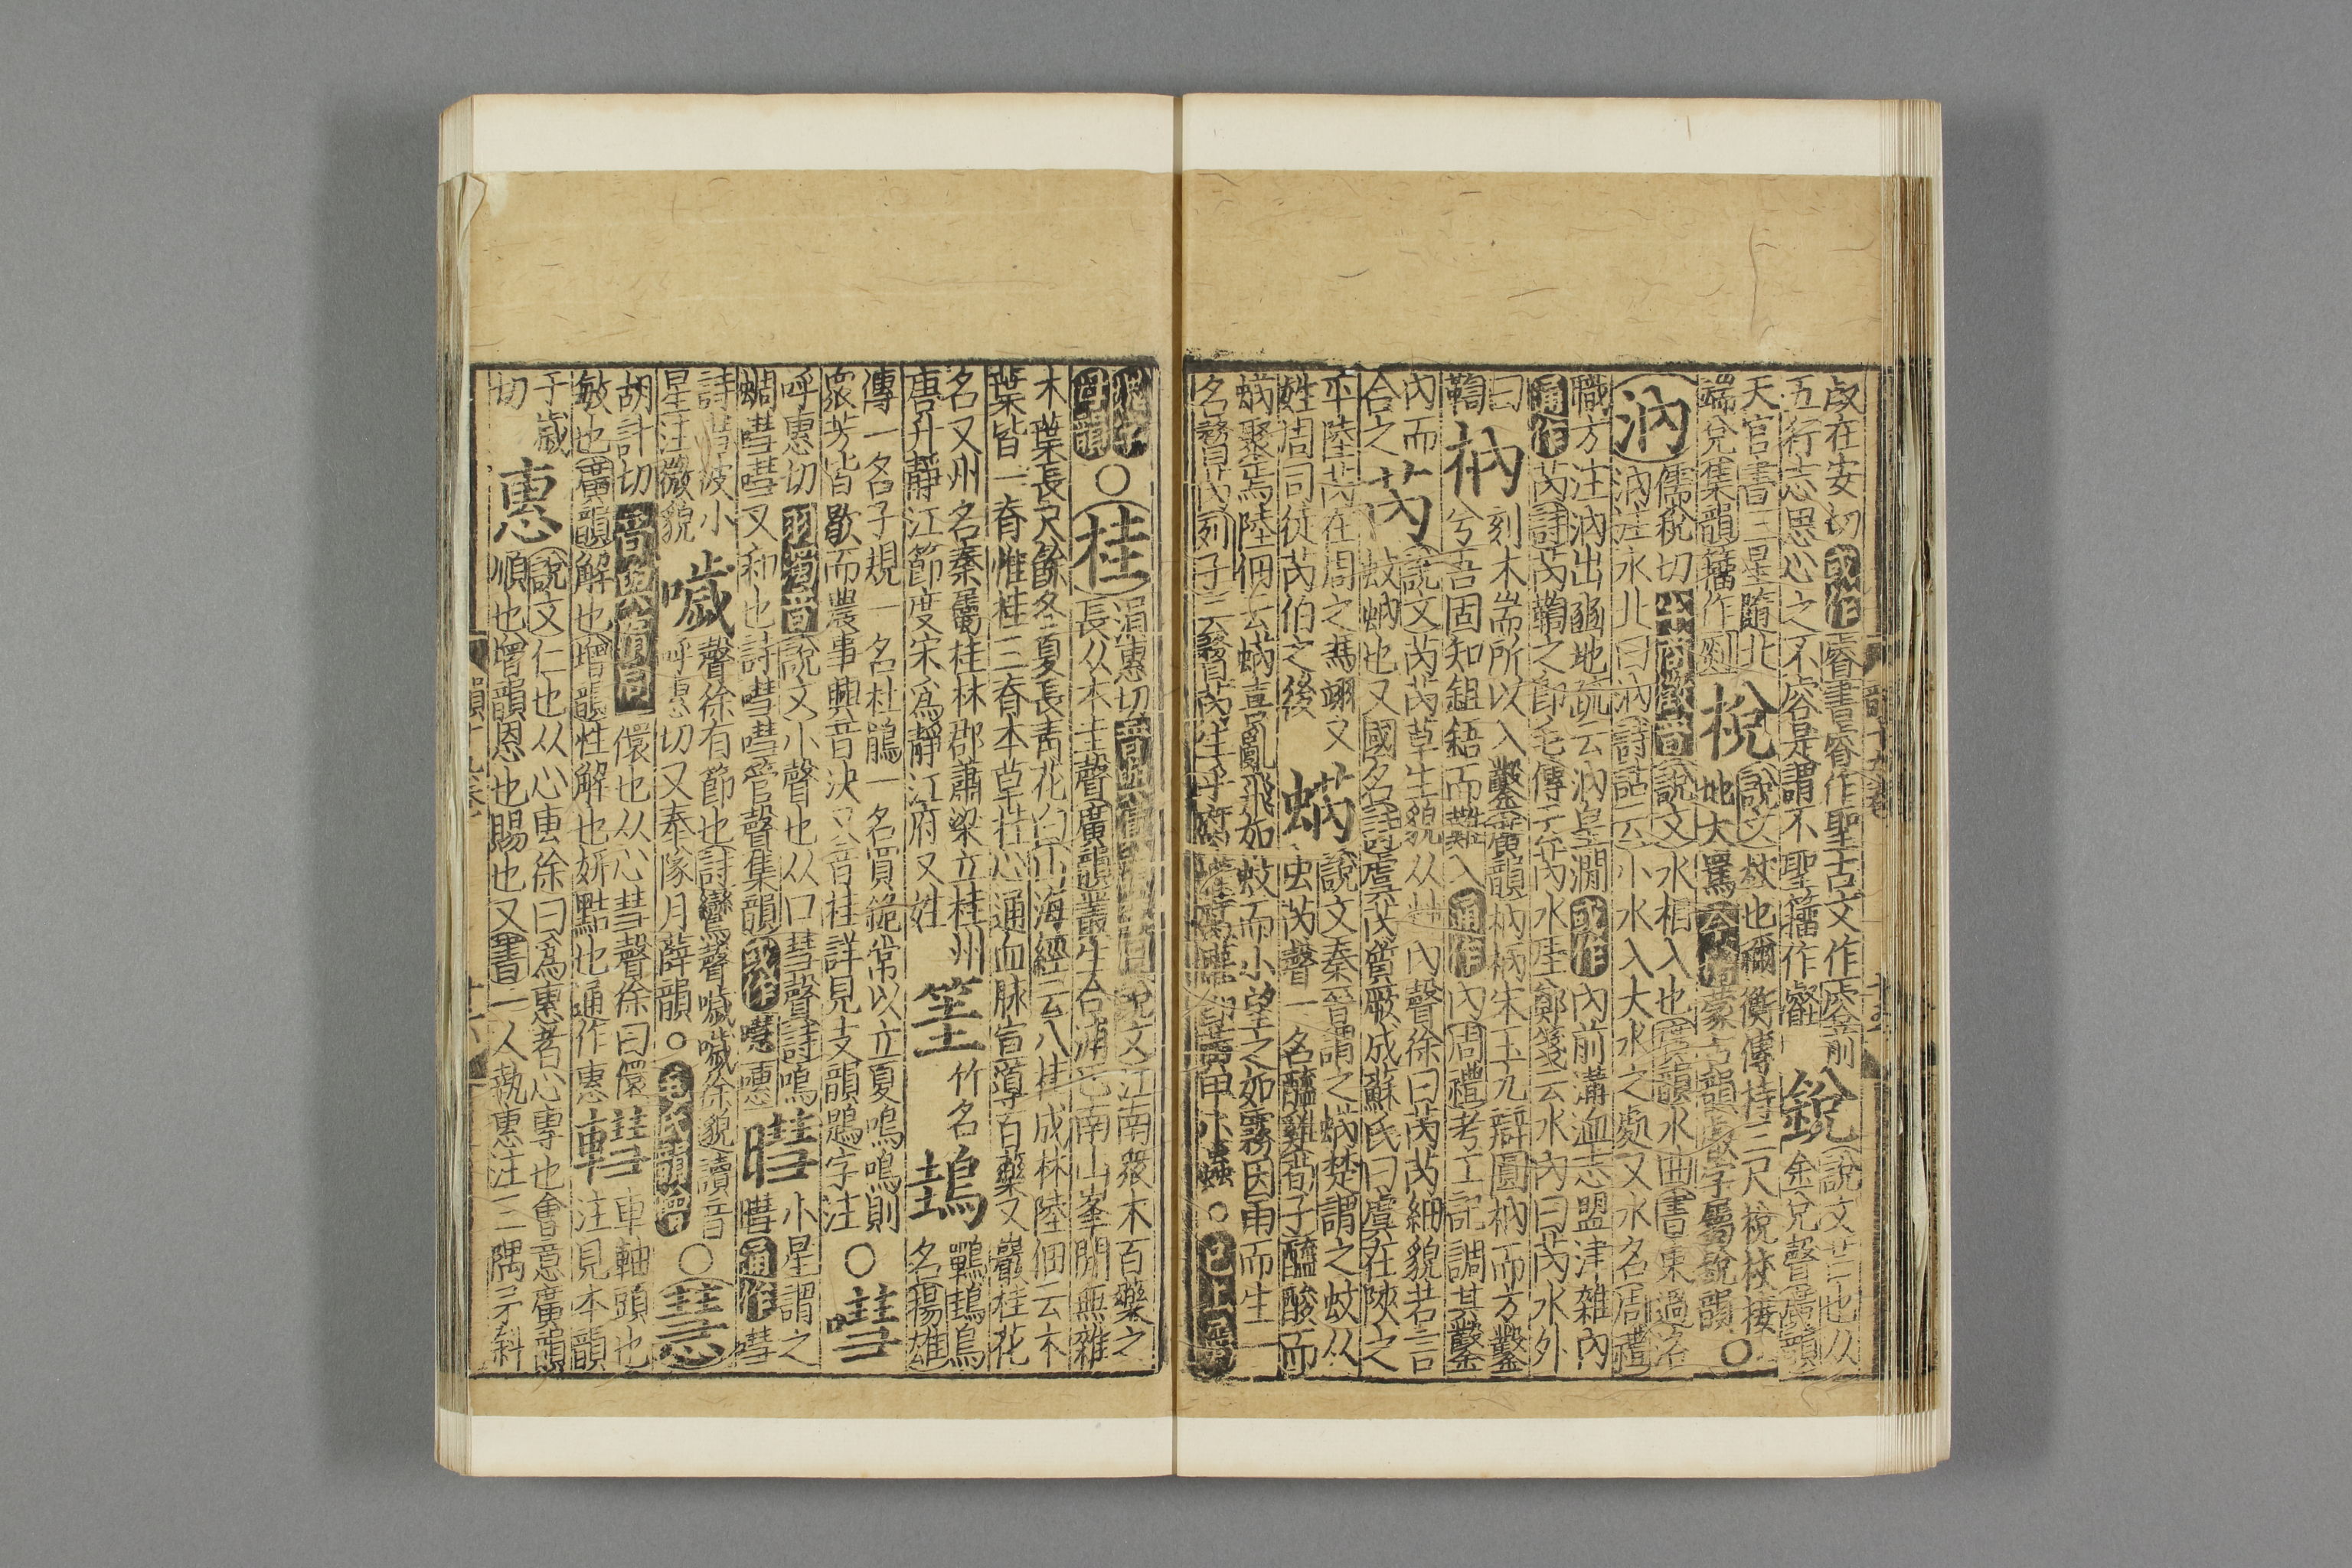 叡在安切或作睿書睿作聖古文作㕡前
五行志思心之不容是謂不聖籀作叡
銳說文芒也从
金兌聲廣韻
天官書三星隨北
端兌集韻籀作㓹
梲說文杖也禰衡傳持三尺梲杖棲
地大罵
蒙古韻字屬銳韻○
汭儒稅切
說文水相入也廣韻水曲書東過洛
汭注水北曰汭詩詁云小水入大水之處又水名周禮
職方注汭出豳地疏云汭皇澗或作內前溝洫志盟津雜內
通作芮詩芮鞫之即毛傳云芮水厓鄭箋云水內曰芮水外
曰
鞫
枘刻木耑所以入鑿廣韻枘柄宋玉九辯圜枘而方鑿
兮吾固知鉏鋙而難入通作內周禮考工記調其鑿
內而
合之
芮說文芮芮草生貌从艸內聲徐曰芮芮細貌若言
蚊蚋也又國名詩虞芮質厥成蘇氏曰虞在陝之
平陸芮在同之馮翊又
姓周司徒芮伯之後
蜹說文秦晉謂之蜹楚謂之蚊从
虫芮聲一名醯雞荀子醯酸而
蜹聚焉陸佃云蜹喜亂飛如蚊而小望之如霧因雨而生一
名瞀芮列子云瞀芮生乎腐蠸
○已上屬
字韻○桂涓惠切
說文江南嚴木百藥之
長从木圭聲廣韻叢生合浦巴南山峯閒無雜
木葉長尺餘冬夏長青花白山海經云八桂成林陸佃云木
葉皆一脊惟桂三脊本草桂心通血脉宣導百藥又巖桂花
名又州名秦屬桂林郡蕭梁立桂州
唐升靜江節度宋爲靜江府又姓
筀竹名
鴂鷤鴂鳥
名揚雄
傳一名子規一名杜鵑一名買䤥常以立夏鳴鳴則
衆芳皆歇而農事興音決又音桂詳見支韻鶗字注○嘒
呼惠切羽濁音說文小聲也从口彗聲詩鳴
蜩嘒嘒又和也詩嘒嘒管聲集韻或作嚖
暳小星謂之
暳通作嘒
詩嘒彼小
星注微貌
噦聲徐有節也詩鸞聲噦噦徐貌讀音
呼惠切又奉隊月薛韻○
○慧
胡計切音與
儇也从心彗聲徐曰儇
敏也廣韻解也增韻性解也妍黠也通作惠
轊車軸頭也
注見本韻
于歲
切
惠說文仁也从心叀徐曰爲惠者心專也會意廣韻
順也增韻恩也賜也又書一人執惠注三隅矛斜